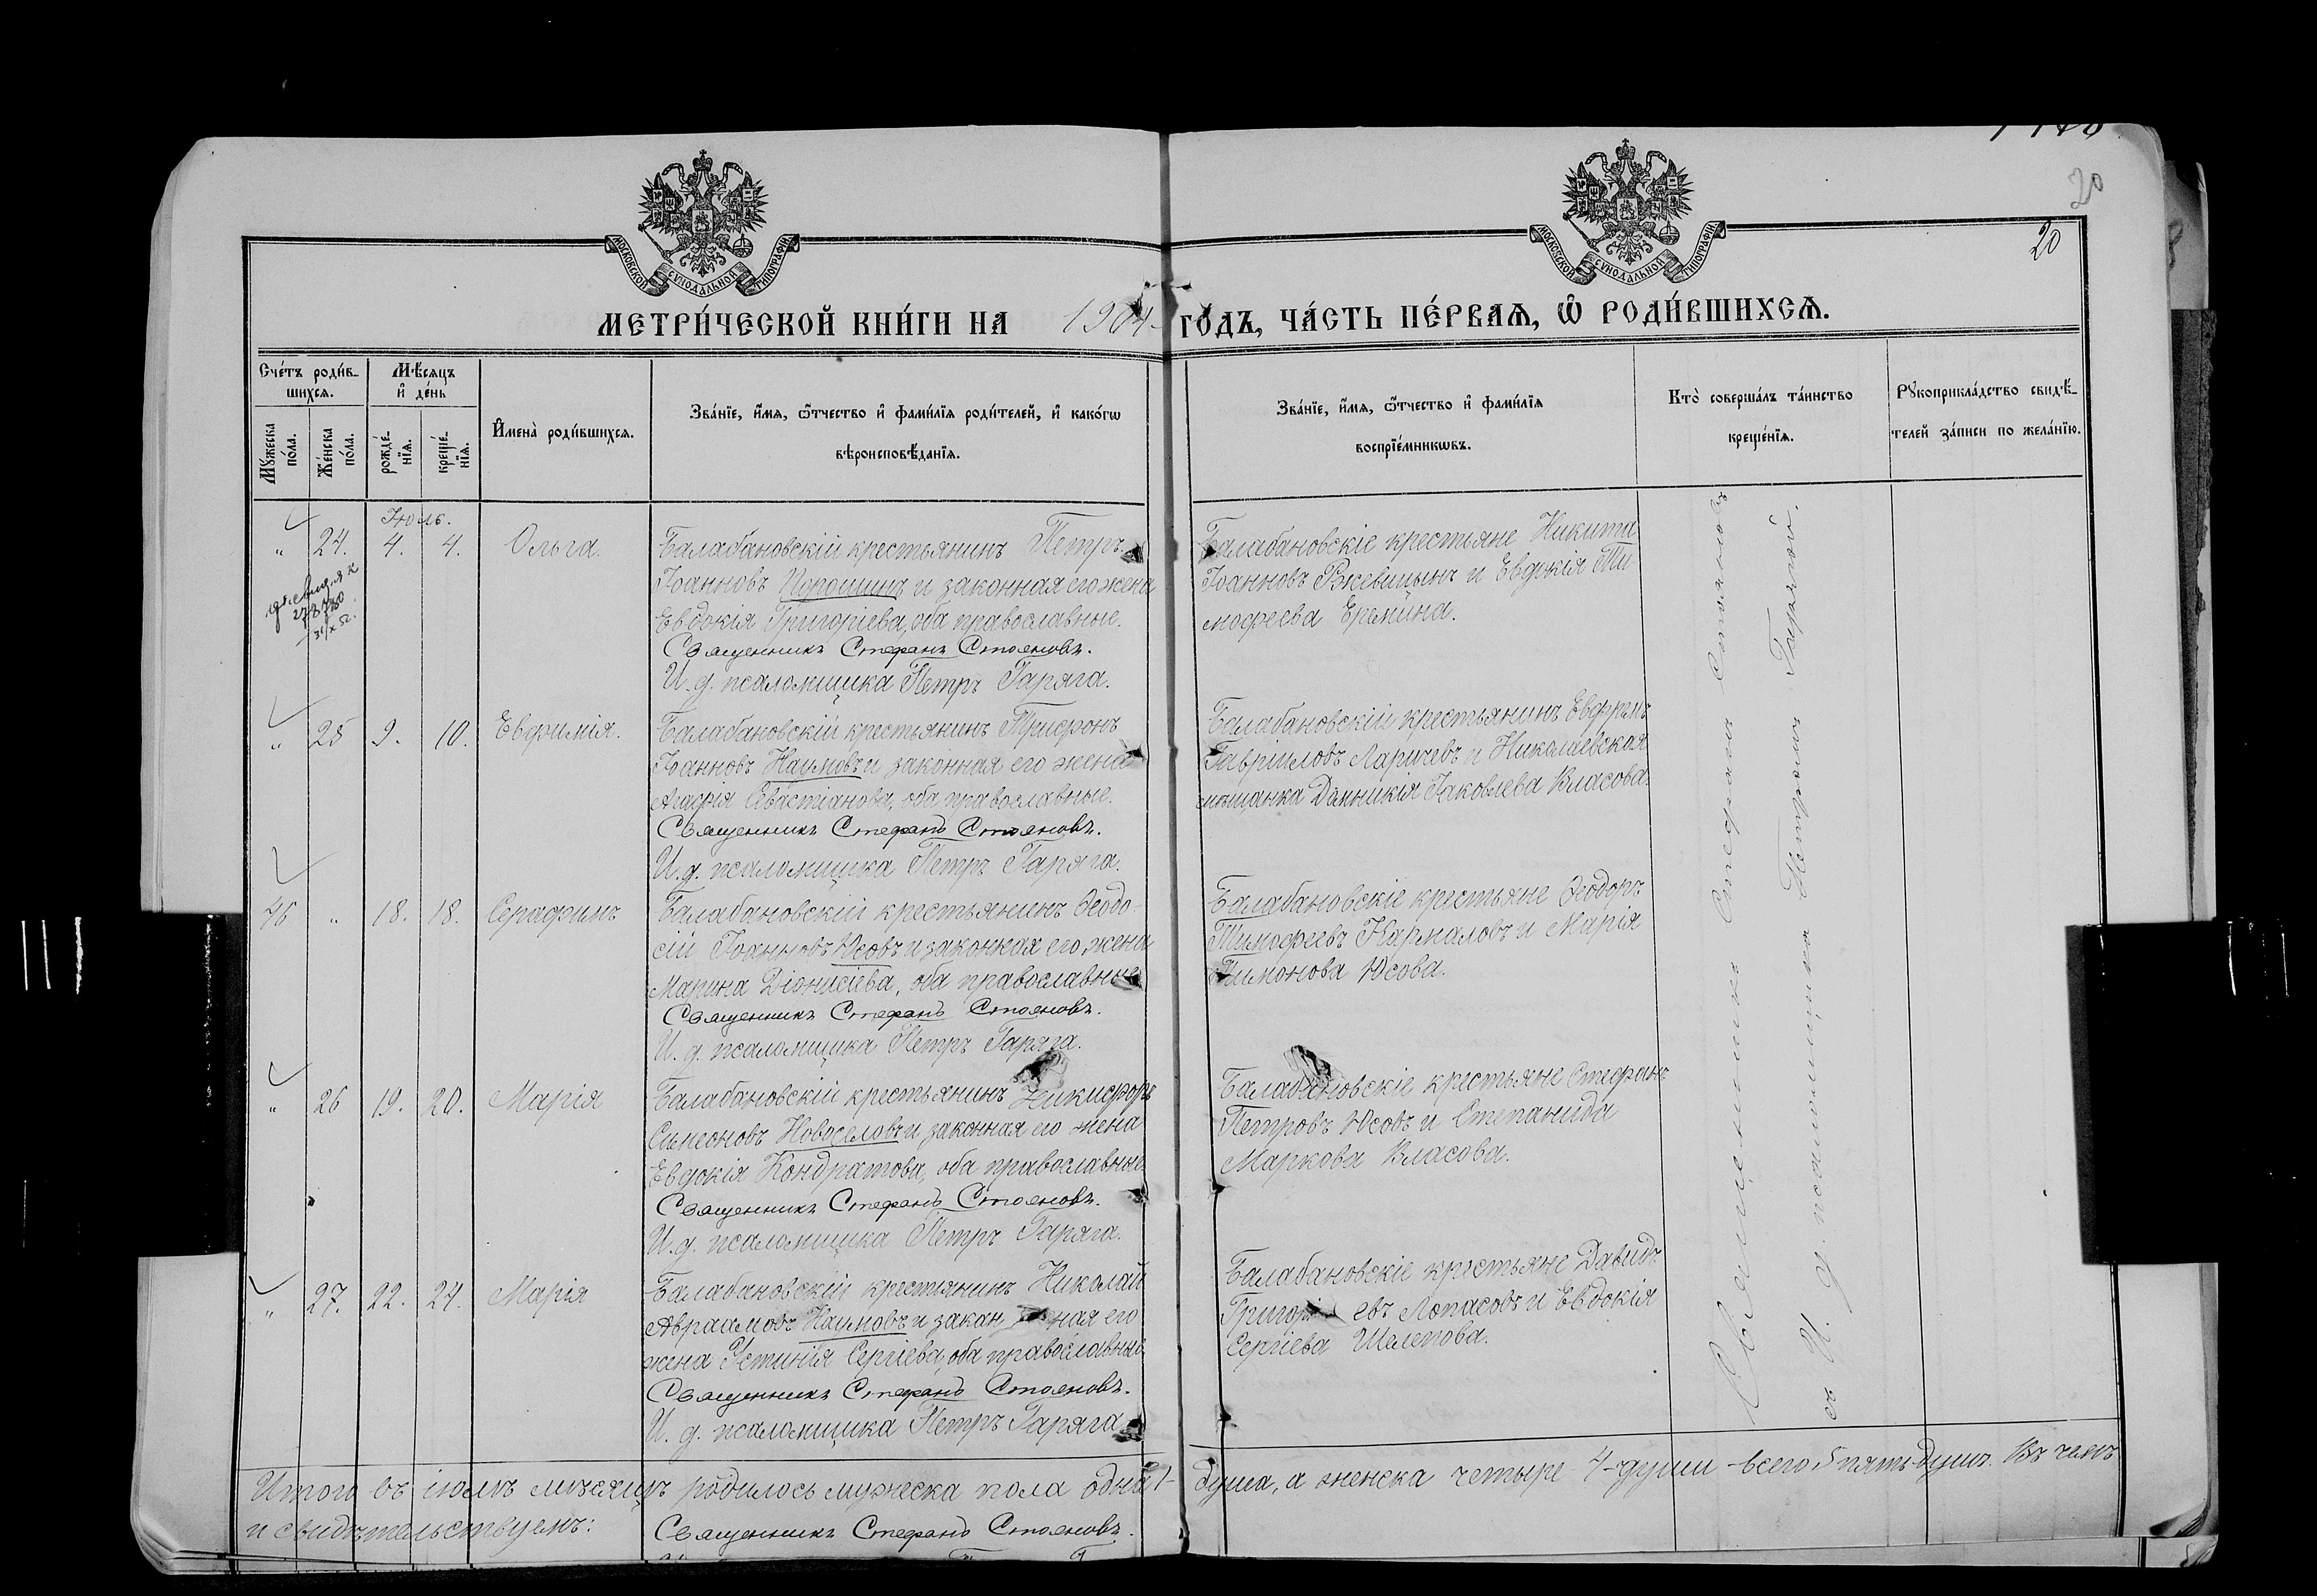 МОСКОВСКОЙ СУНОДАЛЬНОЙ ТИПОГРАФІИ
МОСКОВСКОЙ СУНОДАЛЬНОЙ ТИПОГРАФІИ
20
20
МЕТРИ́ЧЕСКОЙ КНИ́ГИ НА 1904 ГО́ДЪ, ЧА́СТЬ ПЕ́РВАѦ, Ѡ҆ РОДИ́ВШИХСѦ.
Сче́тъ роди́в-
шихсѧ.
Мꙋ́жеска по́ла.
Же́нска по́ла.
Мѣ́сѧцъ
и҆ де́нь
рожде́-
нїѧ.
креще́-
нїѧ.
И҆мена̀ роди́вшихсѧ.
Зва́нїе, и҆́мѧ, ѻ҆́тчество и҆ фами́лїѧ роди́телей, и҆ како́гѡ
вѣроисповѣ́данїѧ.
Зва́нїе, и҆́мѧ, ѻ҆́тчество и҆ фами́лїѧ
воспрїе́мникѡвъ.
Кто̀ соверша́лъ та́инство
креще́нїѧ.
Рꙋкоприкла́дство свидѣ́-
телей за́писи по жела́нїю.
Іюль.
" 24. 4. 4. Ольга.
Балабановскій крестьянинъ Петръ
Іоанновъ Порошинъ и законная его жена
Евдокія Григоріева, оба православные.
Священникъ Стефанъ Стояновъ.
И. д. псаломщика Петръ Гаряга.
Балабановскіе крестьяне Никита
Іоанновъ Ржевицынъ и Евдокія Ти-
мофеева Еремина.
31/X 52.
" 25 9. 10. Евфимія.
Балабановскій крестьянинъ Трифонъ
Іоанновъ Наумовъ и законная его жена
Агафія Севастіанова, оба православные.
Священникъ Стефанъ Стояновъ.
И. д. псаломщика Петръ Гаряга.
Балабановскій крестьянинъ Евфимъ
Гавріиловъ Ларичевъ и Николаевская
мѣщанка Домникія Іаковлева Власова.
46 " 18. 18. Серафимъ
Балабановскій крестьянинъ Ѳеодо-
сій Іоанновъ Юсовъ и законная его жена
Марина Діонисіева, оба православные
Священникъ Стефанъ Стояновъ.
И. д. псаломщика Петръ Гаряга.
Балабановскіе крестьяне Ѳеодоръ
Тимофеевъ Кармаловъ и Марія
Филимонова Юсова.
" 26 19. 20. Марія
Балабановскій крестьянинъ Никифоръ
Симеоновъ Новоселовъ и законная его жена
Евдокія Кондратова, оба православные
Священникъ Стефанъ Стояновъ.
И. д. псаломщика Петръ Гаряга.
Балабановскіе крестьяне Стефанъ
Петровъ Юсовъ и Степанида
Маркова Власова.
" 27. 22. 24. Марія
Балабановскій крестьянинъ Николай
Авраамовъ Наумовъ и закан ная его
жена Устинія Сергіева, оба православные
Священникъ Стефанъ Стояновъ.
И. д. псаломщика Петръ Гаряга
Балабановскіе крестьяне Давидъ
Григорі евъ Лопасовъ и Евдокія
Сергіева Шелепова.
Священникъ Стефанъ Стояновъ
съ И. д. псаломщика Петромъ Гарягой.
Итого въ іюлѣ мѣсяцѣ родилось мужеска пола одна 1- душа, а женска четыре 4-души - всего 5 пять душъ. Въ чемъ
и свидѣтельствуемъ: Священникъ Стефанъ Стояновъ.